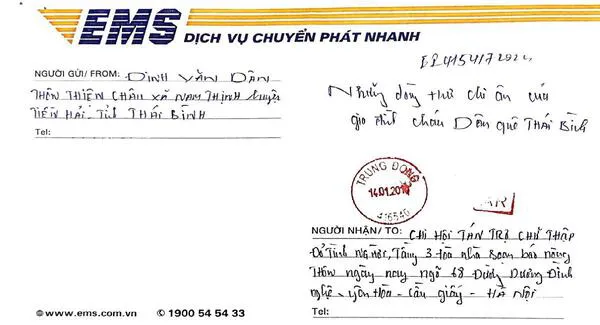 EMS DỊCH VỤ CHUYỂN PHÁT NHANH
NGƯỜI GỬI/ FROM: ĐINH VĂN DÂN
THÔN THIÊN CHÂU XÃ NAM THỊNH huyện
TIỀN HẢI. TỈNH THÁI BÌNH
Tel:
Những dòng thư chi ân của
gia đình cháu Dân quê THÁI BÌNH
TRUNG ĐỒNG
14.01.20
416546
AR
NGƯỜI NHẬN/ TO: CHI HỘI TÁN TRỢ CHỮ THẬP
ĐỎ TÌNH NGƯỜI, Tầng 3 tòa nhà soạn báo nông
thôn ngày nay ngõ 68 Đường Dương Đình
nghệ - yên Hòa - Cầu giấy - HÀ NỘI
Tel:
www.ems.com.vn ✆ 1900 54 54 33